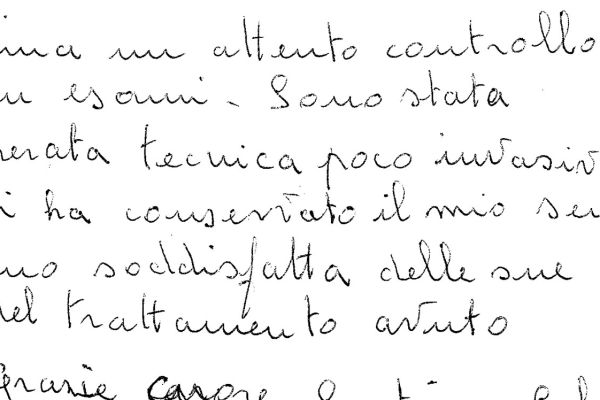 ima un attento controllo
esami. Sono stata
erata tecnica poco invasiv
i ha conservato il mio sen
no soddisfatta delle sue
nel trattamento avuto
grazie